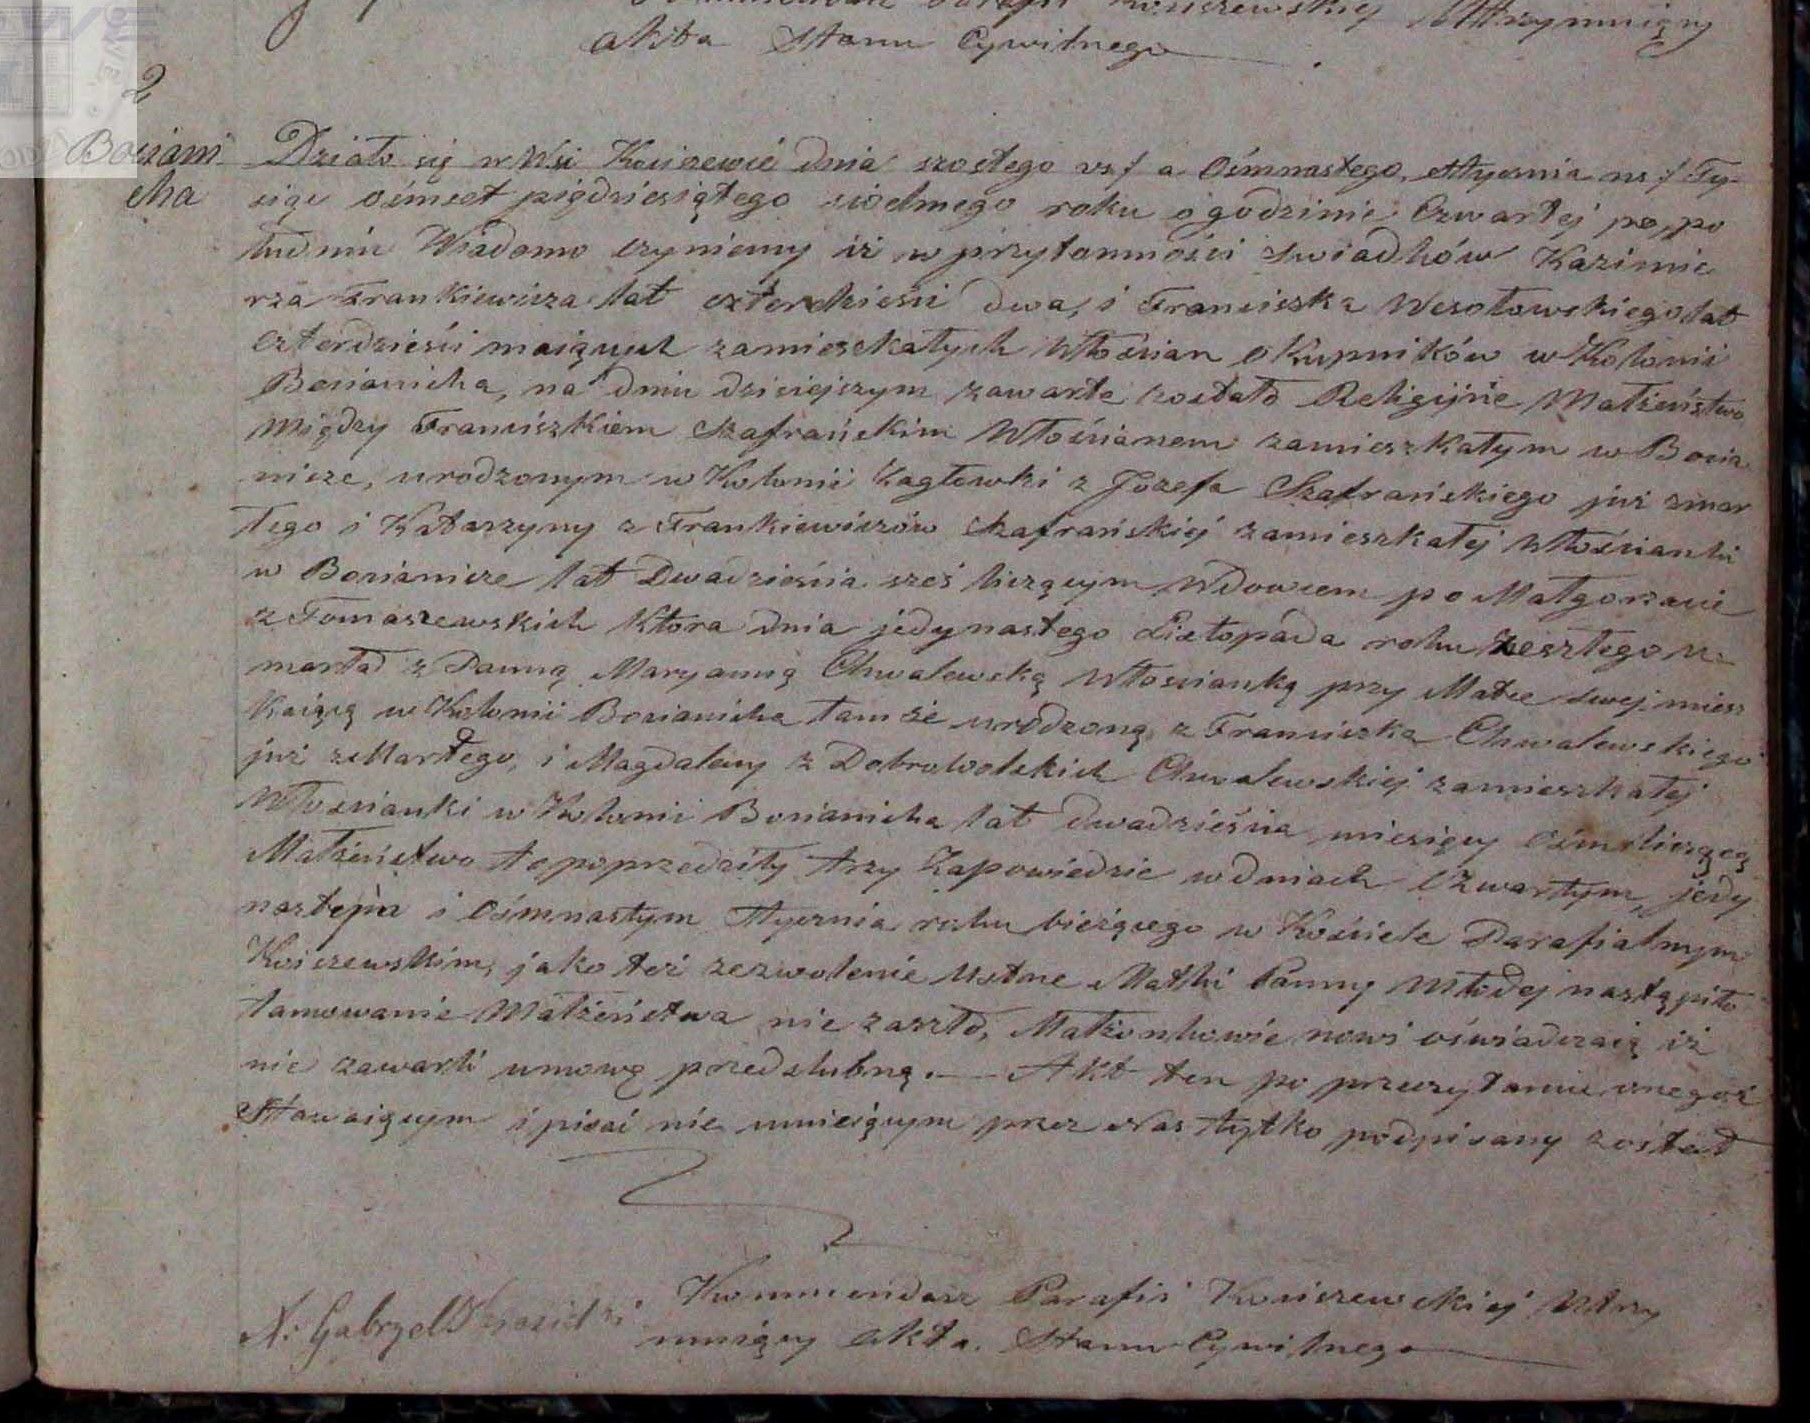 Parafii Koiszewskiej Utrzymuiący
Akta Stanu Cywilnego
2
Bociani
cha
Działo się w Wsi Koiszewie dnia szóstego v.s/ a Ośmnastego Stycznia n.s/ Ty-
siąc ośmset pięćdziesiątego siódmego roku o godzinie Czwartej po po
łudniu Wiadomo czyniemy iż w przytomności Swiadków Kazimie
rza Frankiewicza lat czterdzieści dwa, i Franciszka Wesołowskiego lat
czterdzieści maiących zamieszkałych Włościan Okupników w Kolonii
Bocianicha, na dniu dzisiejszym zawarte zostało Religijne Małżeństwo
między Franciszkiem Szafrańskim Włościanem zamieszkałym w Bocia
nisze, urodzonym w Kolonii Zagłówki z Józefa Szafrańskiego już zmar
łego i Katarzyny z Frankiewiczów Szafrańskiej zamieszkałej Włościanki
w Bocianisze lat Dwadzieścia sześ liczącym Wdowcem po Małgorzacie
z Tomaszewskich Która dnia jedynastego Listopada roku Zeszłego u-
marła z Panną Maryanną Chwalewską Włościanką przy Matce swej miesz
kaiącą w Kolonii Bocianicha tamże urodzoną z Franciszka Chwalewskiego
już zMarłego, i Magdaleny z Dobrowolskich Chwalewskiej zamieszkałej
Włościanki w Kolonii Bocianicha lat dwadzieścia miesięcy Ośm liczącą
Małżeństwo to poprzedziły trzy Zapowiedzie w dniach Czwartym, jedy
nastym i Ośmnastym Stycznia roku bieżącego w Kościele Parafialnym
Koiszewskim, jako też zezwolenie Ustne Matki Panny Młodej nastąpiło
tamowanie Małżeństwa nie zaszło, Małżonkowie nowi oświadczaią iż
nie zawarli umowę przedślubną. — Akt ten po przeczytaniu onegoż
Stawaiącym i pisać nie umieiącym przez Nas tylko podpisany został
X: Gabryel
Kommendarz Parafii Koiszewskiej Utrzy
muiący Akta Stanu Cywilnego